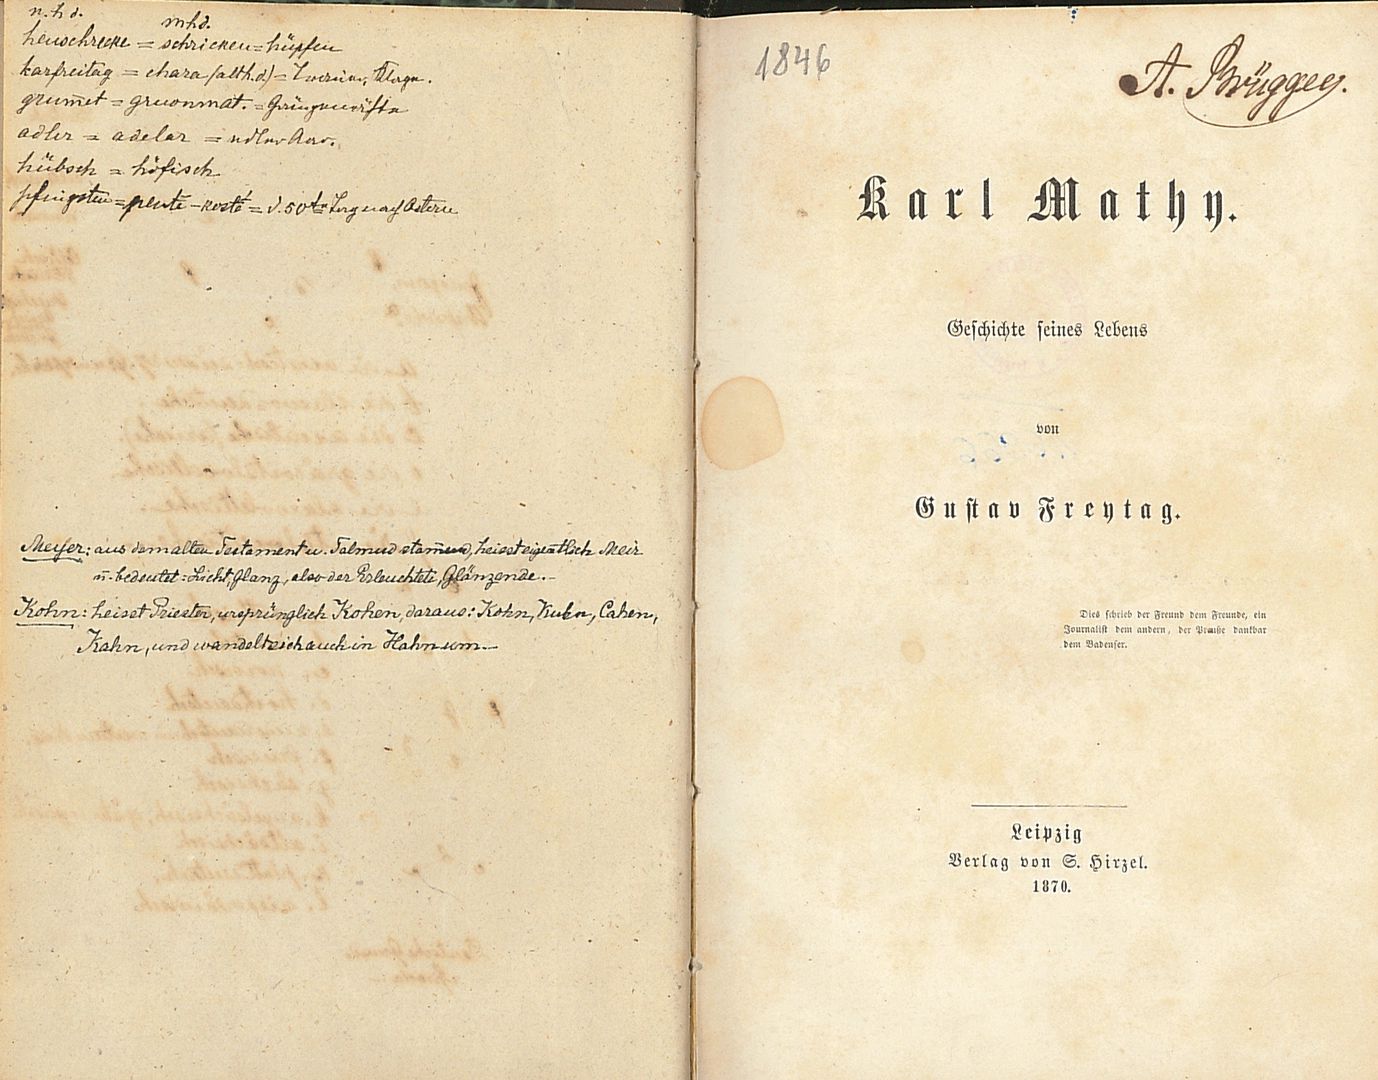 n.h.d. mhd.
heuschrecke = schricken = hüpfen
karfreitag = chara (alth.d.) = Trauer, Klage.
grum̅et = gruonmat. = Grüngemäh
adler = adelar = edler Aar.
hübsch = höfisch
pfingsten = pente - kosté = d. 50te Tag nach Ostern
Meyer: aus dem alten Testament u. Talmud stam̅end, heisst eigentlich Meir
u. bedeutet: Licht, Glanz, also der Erleuchtete, Glänzende. -
Kohn: heisst Priester, ursprünglich Kohen, daraus: Kohn, Kuhn, Cahen,
Kahn, und wandelt sich auch in Hahn um. -
1846
A. Brüggen.
Karl Mathy.
Geschichte seines Lebens
von
Gustav Freytag.
Dies schrieb der Freund dem Freunde, ein
Journalist dem andern, der Preuße dankbar
dem Badenser.
Leipzig
Verlag von S. Hirzel.
1870.